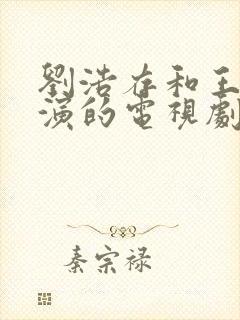 劉浩存和王
演的電視劇
秦宗禄